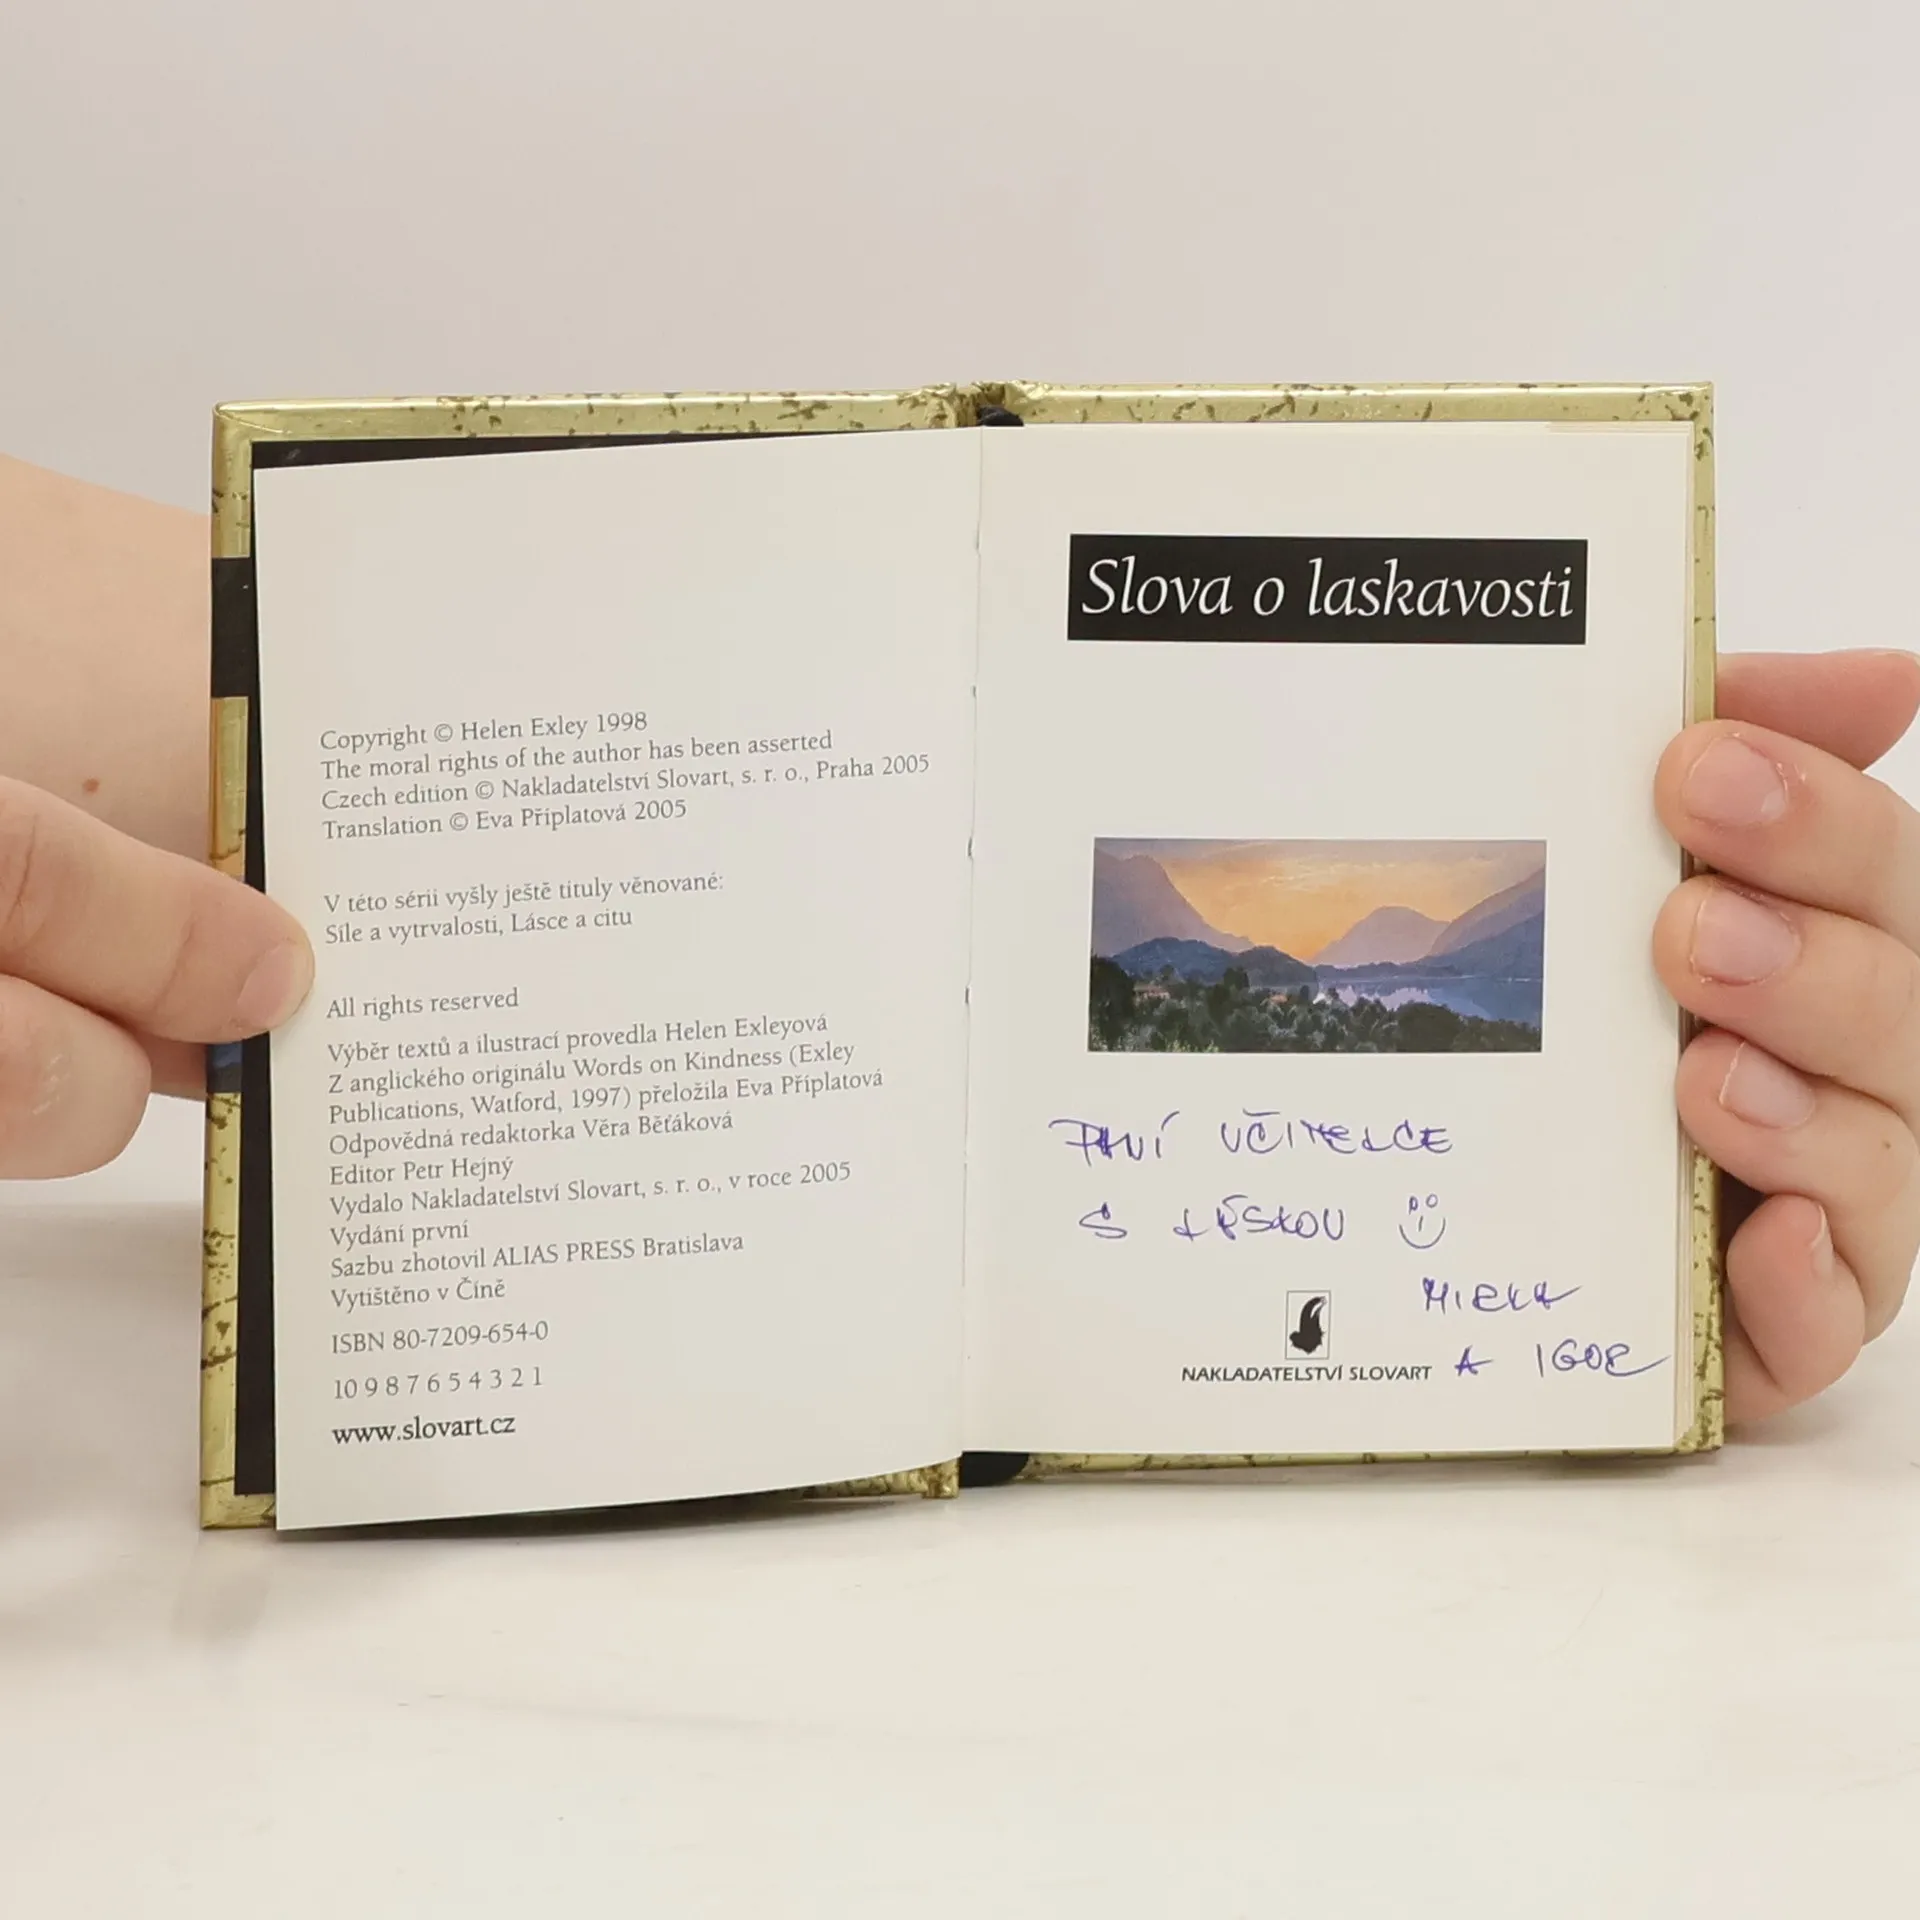 Copyright © Helen Exley 1998
The moral rights of the author has been asserted
Czech edition © Nakladatelství Slovart, s. r. o., Praha 2005
Translation © Eva Příplatová 2005
V této sérii vyšly ještě tituly věnované:
Síle a vytrvalosti, Lásce a citu
All rights reserved
Výběr textů a ilustrací provedla Helen Exleyová
Z anglického originálu Words on Kindness (Exley
Publications, Watford, 1997) přeložila Eva Příplatová
Odpovědná redaktorka Věra Běťáková
Editor Petr Hejný
Vydalo Nakladatelství Slovart, s. r. o., v roce 2005
Vydání první
Sazbu zhotovil ALIAS PRESS Bratislava
Vytištěno v Číně
ISBN 80-7209-654-0
10 9 8 7 6 5 4 3 2 1
www.slovart.cz
Slova o laskavosti
PANÍ UČITELCE
S LÁSKOU
MIRKA
A IGOR
NAKLADATELSTVÍ SLOVART